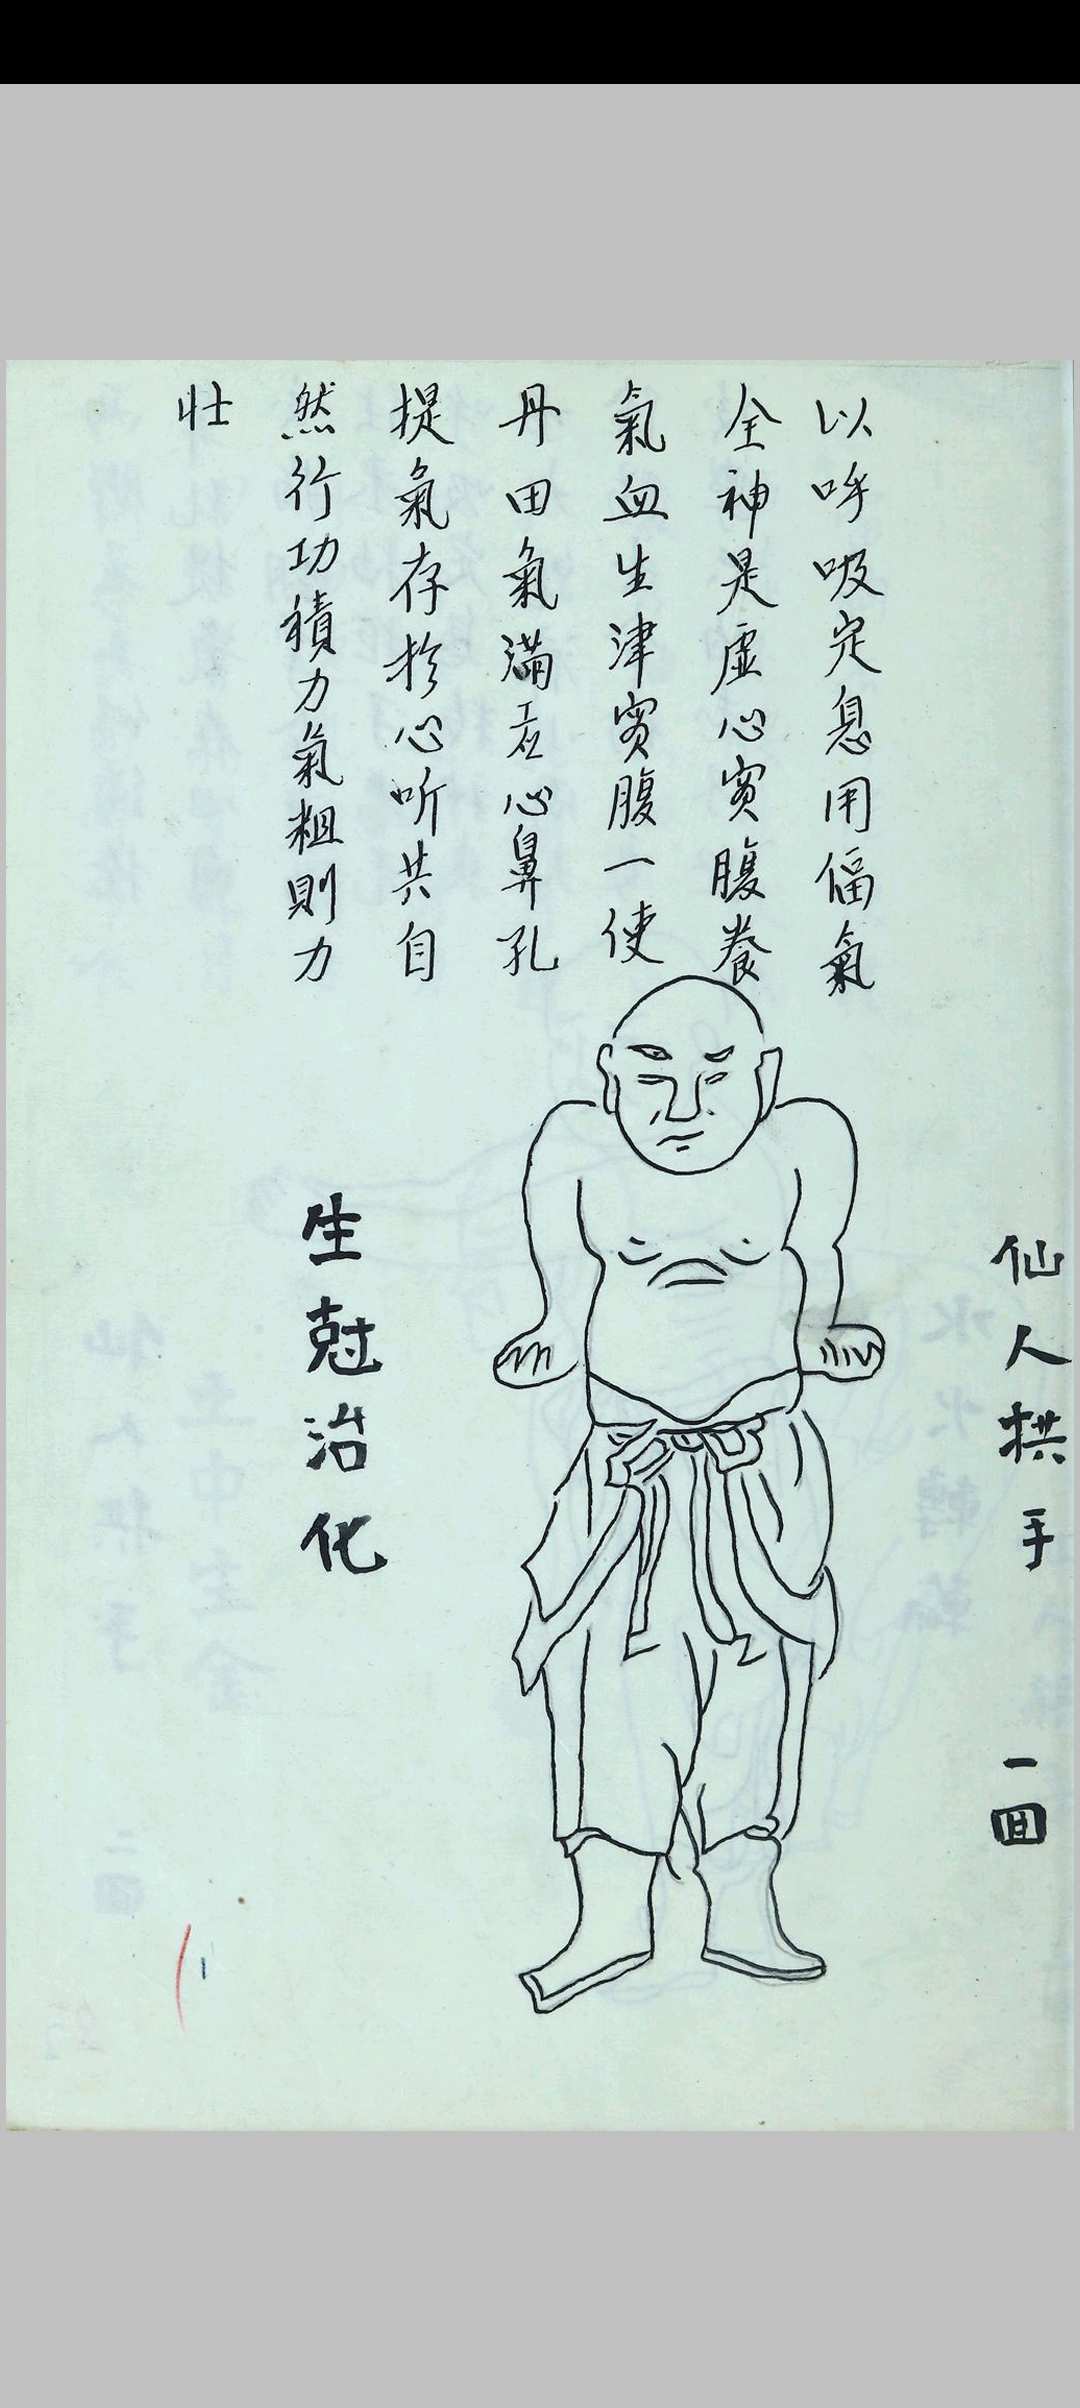 仙人拱手 一回
以呼吸定息用偪氣
全神是虛心实腹养
氣血生津实腹一使
丹田氣滿在心鼻孔
提氣存於心听其自
然行功積力氣粗則力
壮
生尅治化
1